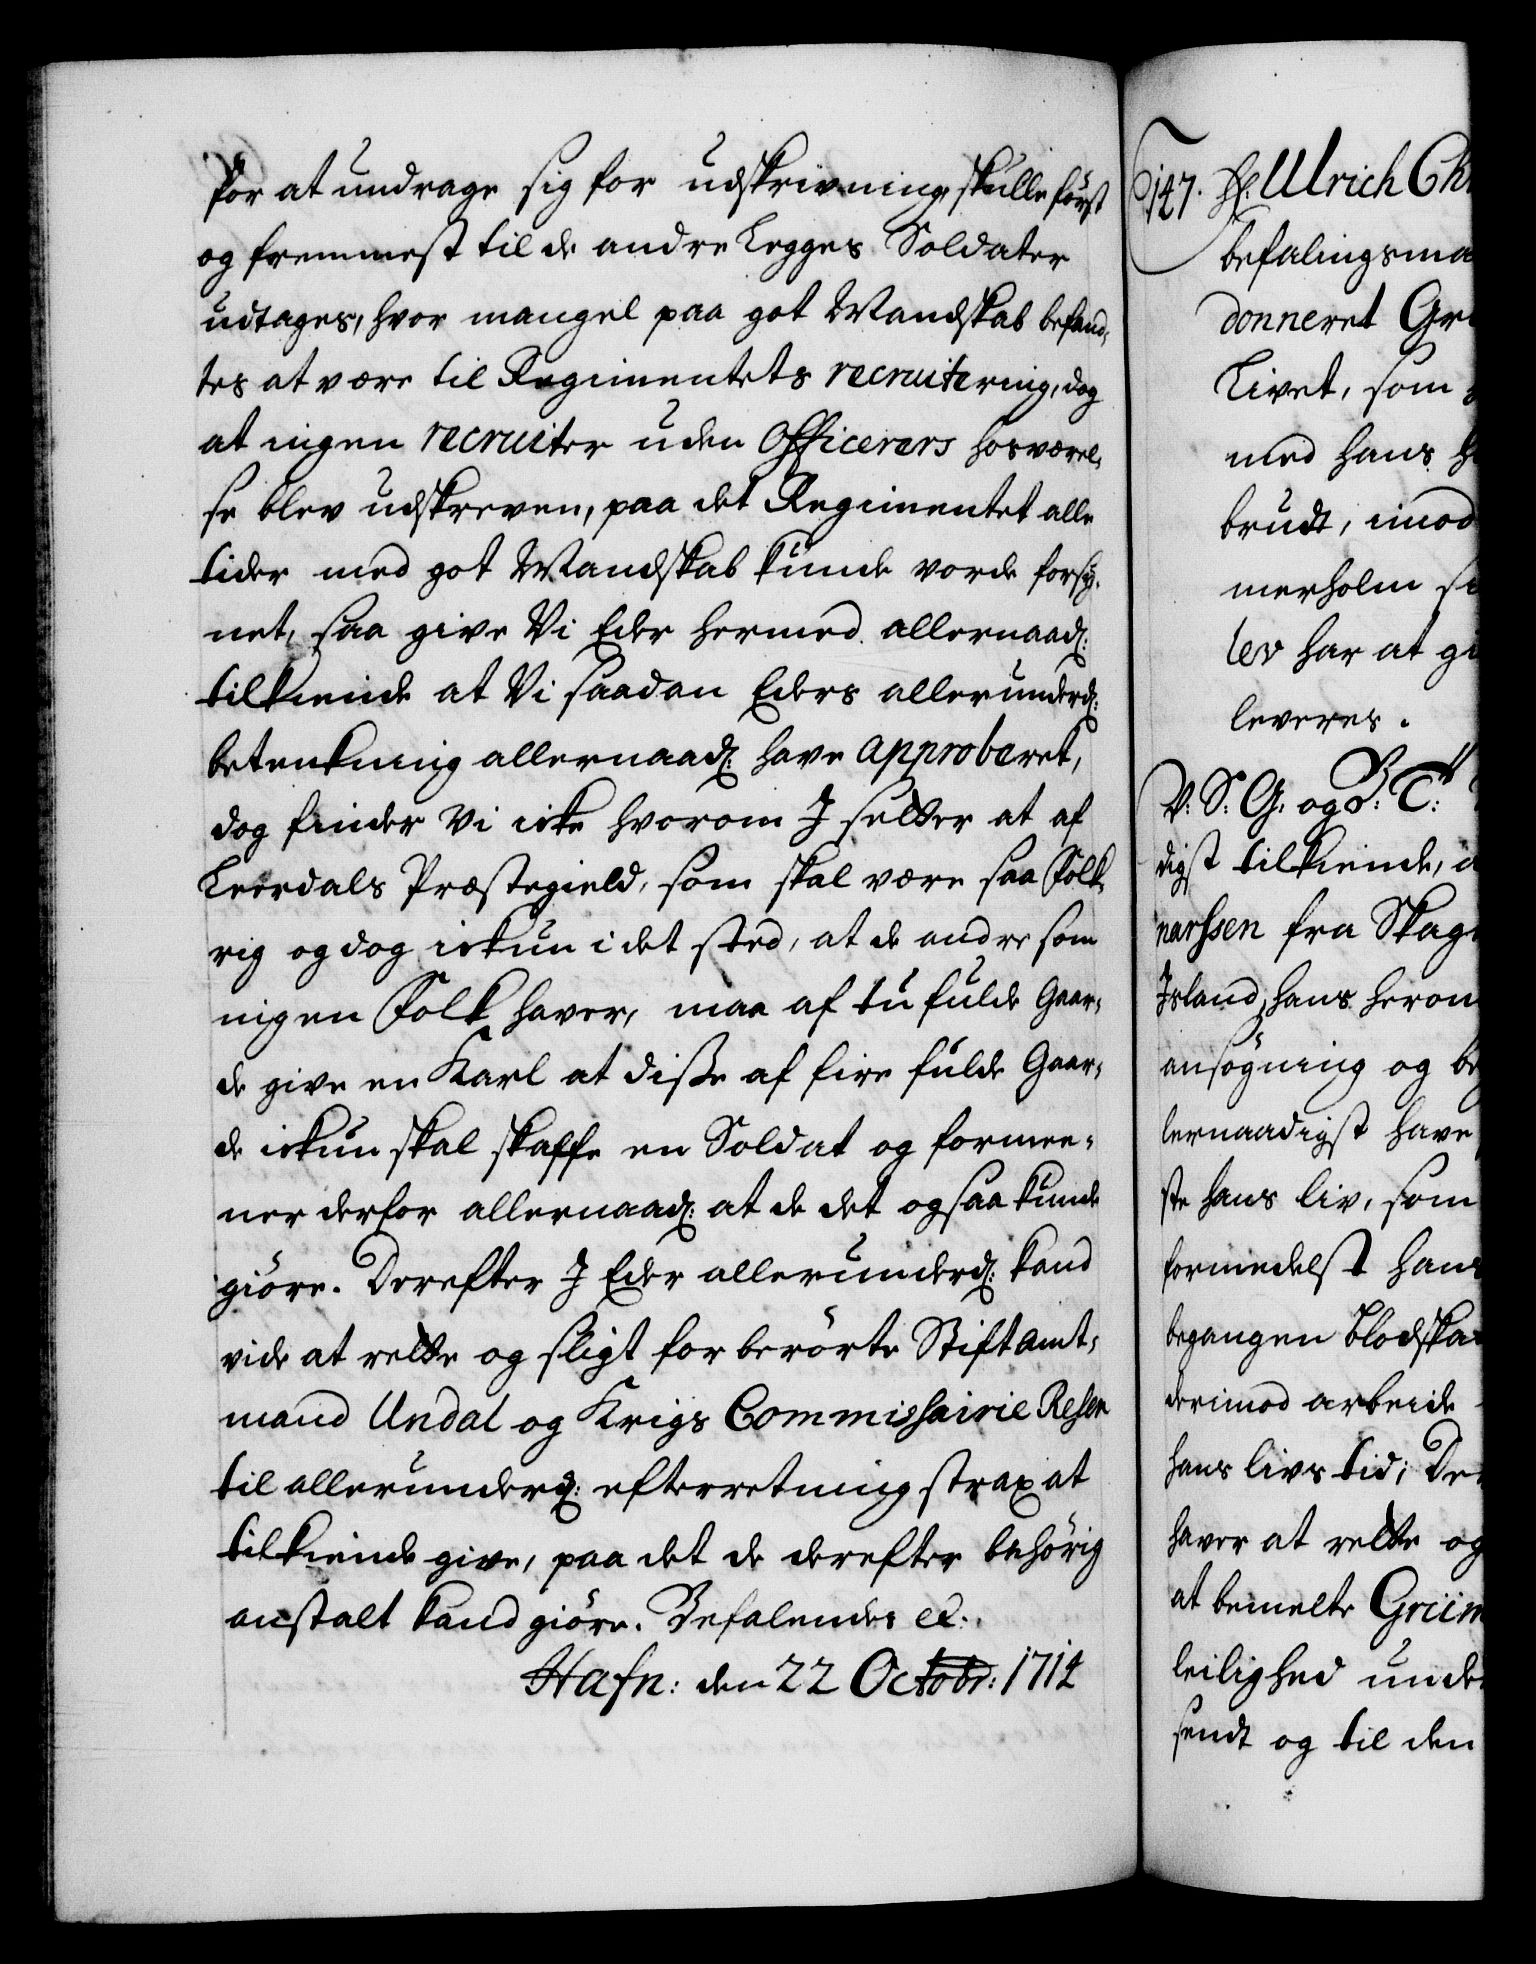 for at undrage sig for udskrivning, skulle först
og fremmest til de andre Legges Soldater
udtages, hvor mangel paa got Mandskab befand¬
tes at være til Regimentets recruitering, dog
at ingen recruiter uden Officerers hosværel¬
se blev udskreven, paa det Regimentet alle
tider med got Mandskab kunde vorde forsy¬
net, saa give Vi Eder hermed allernaad:
tilkiende at Vi saadan Eders allerunderd:
betenkning allernaad: have approberet,
dog finder Vi icke hvorom I selver at af
Leerdals Præstegield, som skal være saa Folk¬
rig og dog ickun i det sted, at de andre som
ingen Folk haver, maa af tu fulde Gaar¬
de give en Karl at disse af fire fulde Gaar¬
de ickun skal skaffe en Soldat og formee¬
ner derfor allernaad: at de det ogsaa kunde
giöre. Derefter I Eder allerunderd: kand
vide at rette og sligt for berörte Stiftamt¬
mand Undal og Krigs Commissairie Resen
til allerunderd: efterretning strax at
tilkiende give, paa det de derefter behörig
anstalt kand giöre. Befalendes etc.
Hafn: den 22 Octobr: 1714
147. Hr. Ulrich Ch
befalingsma
donneret Gr
Livet, som
med hans
brudt, imod
merholm
lev har at gi
leveres.
V: S: G. og B: T:
digst tilkiende, a
narssen fra Skag
Island, hans herom
ansögning og be
lernaadigst have
ste hans liv, som
formedelst hans
begangen Blodska
derimod arbeide
hans livs tid; De
haver at rette og
at bemelte Griim
leilighed unde
sendt og til den